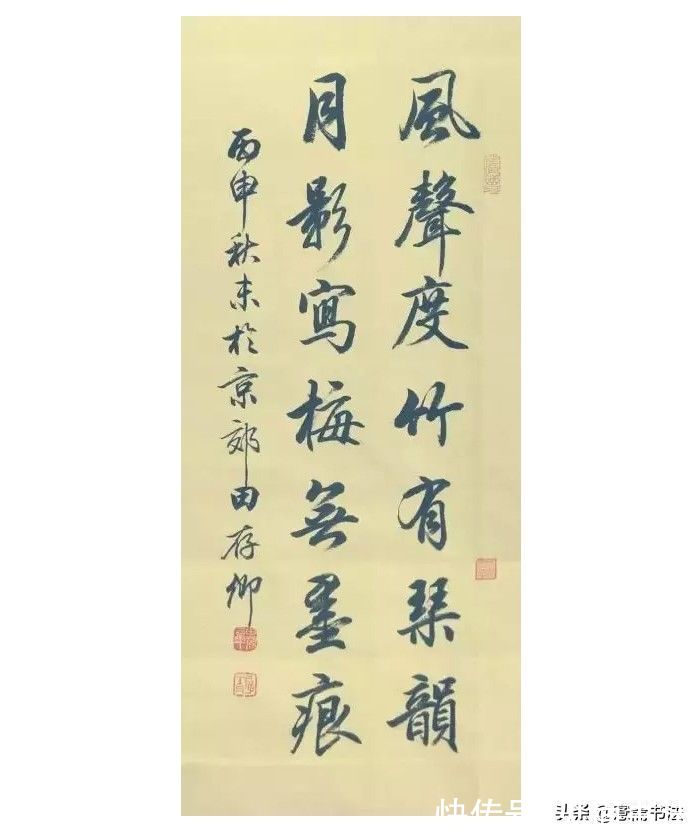 風聲度竹有琴韻
月影寫梅無墨痕
丙申秋末於京郊田存卿
快传号
头条@寰宝书法